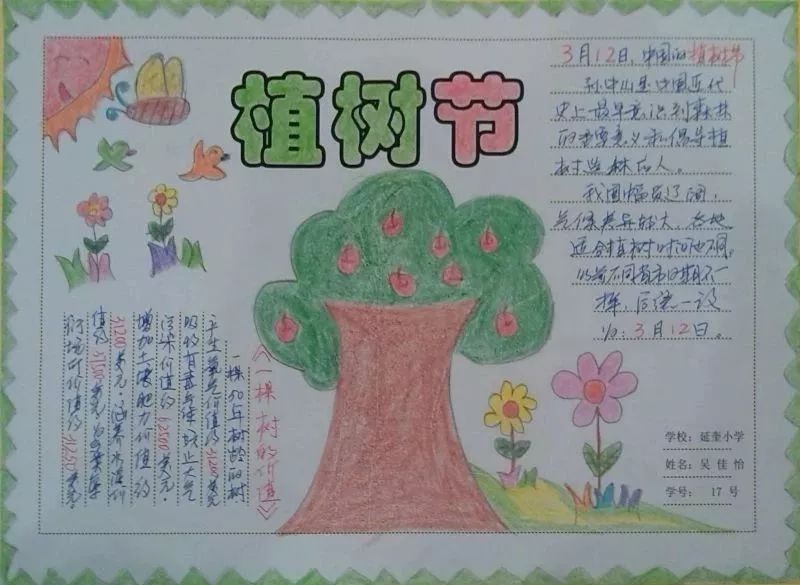 植树节
3月12日,中国的植树节
孙中山是中国近代
史上最早意识到森林
的重要意义和倡导植
树造林的人。
我国幅员辽阔,
气候差异较大,各地
适合植树时间也不同,
不同省市日期不一
样,后统一设
为:3月12日。
《一棵树的价值》
一棵50年树龄的树
产生氧气价值约31200美元
吸收有毒气体防止大气
污染价值约62500美元,
增加土壤肥力价值约
31200美元,涵养水源价
值约37500美元,
价值约31250美元。
学校:延奎小学
姓名:吴佳怡
学号:17号